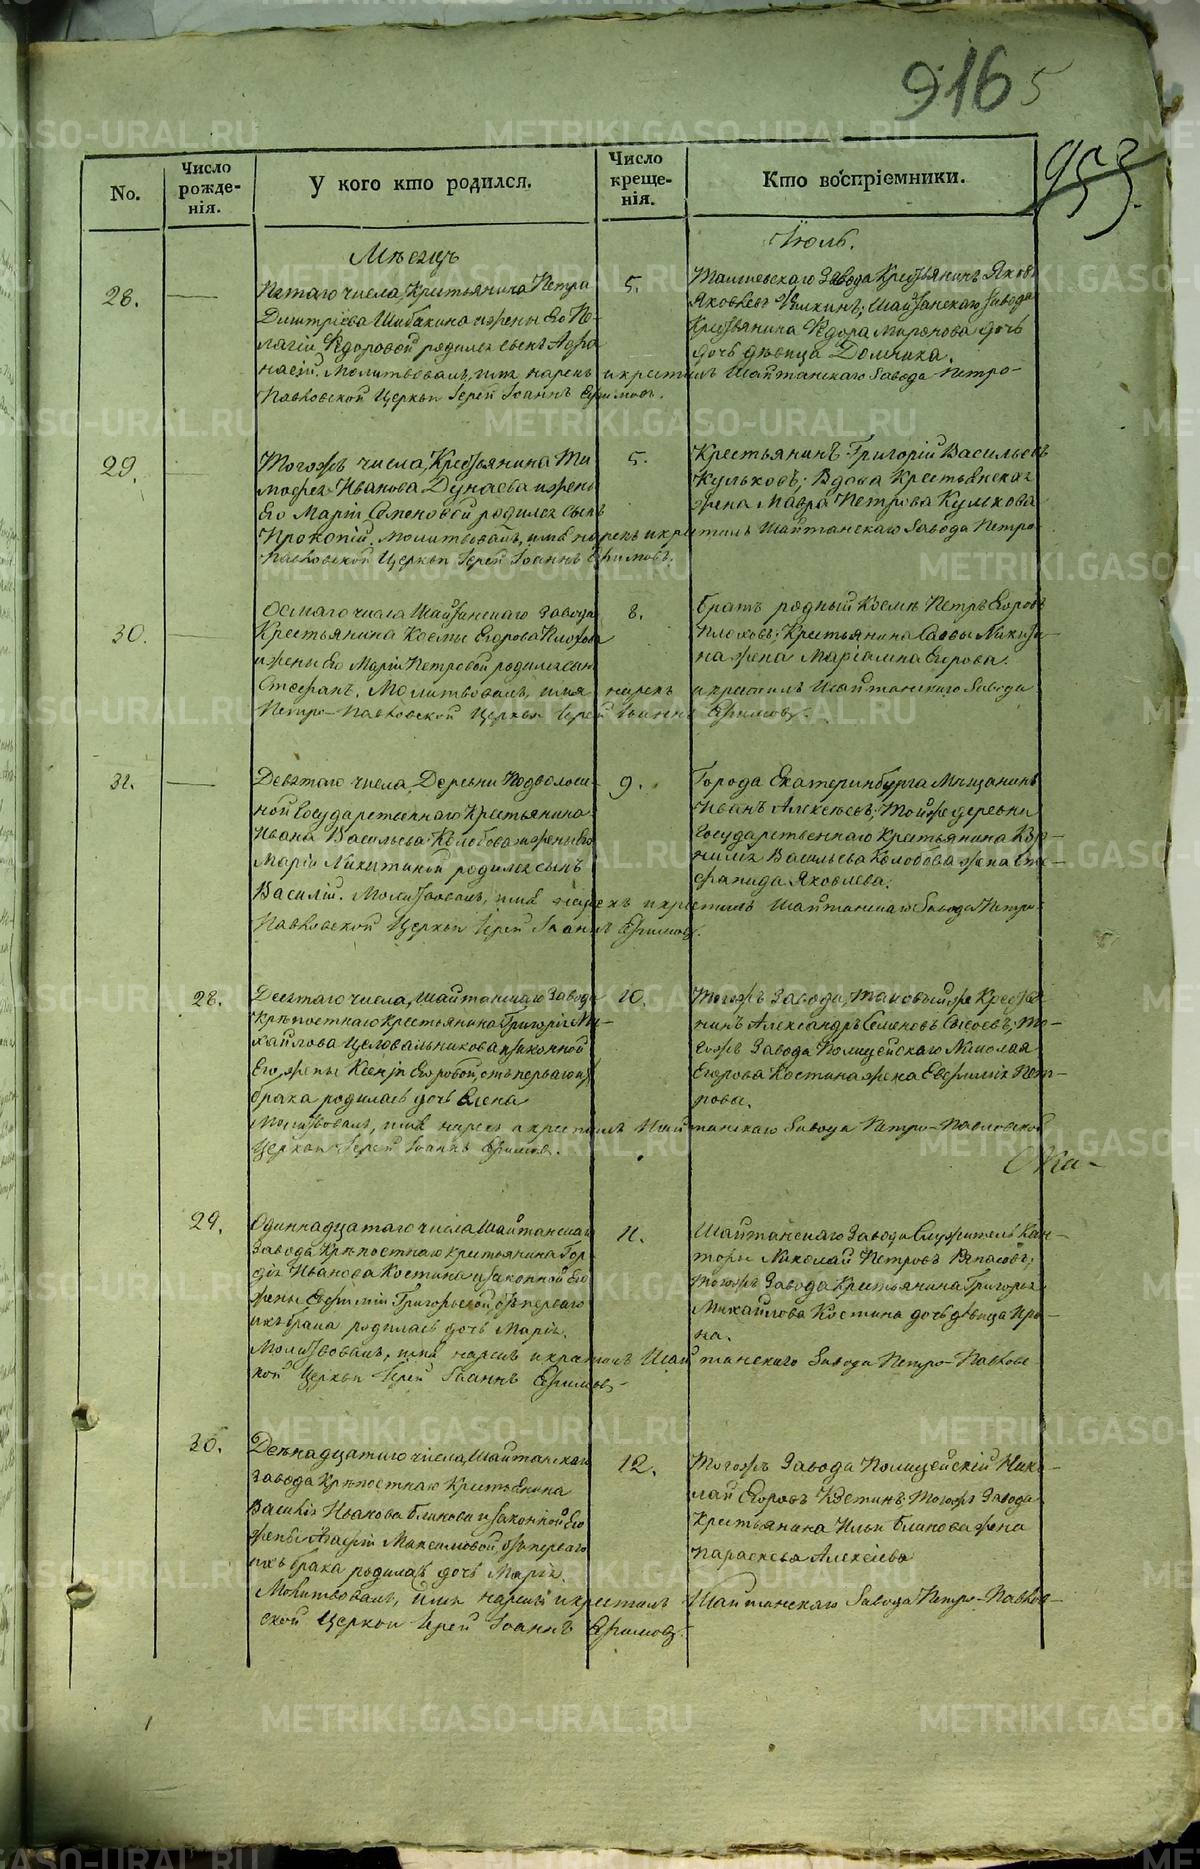 916 5
953.
No.
Число рожде-нія.
У кого кто родился.
Число креще-нія.
Кто воспріемники.
Мѣсяцъ
Іюль.
28.
Пятаго числа, Крестьянина Петра
Димитріева Шибакина и жены Его Пе-
лагіи Ѳедоровой родился сынъ Аѳа
насій. Молитвовалъ, имя нарекъ и крестилъ Шайтанскаго Завода Петро-
Павловской Церкви Іерей Іоаннъ Ефимовъ.
5.
Крестьянинъ Яковъ
Яковлевъ Шайтанскаго Завода
Крестьянина Ѳедора Миронова дочь
дочь дѣвица Домника.
29.
Тогожъ числа, Крестьянина Ти
моѳея Иванова Дунаева и жены
Его Маріи Семеновой родился сынъ
Прокопій. Молитвовалъ, имя нарекъ и крестилъ Шайтанскаго Завода Петро
Павловской Церкви Іерей Іоаннъ Ефимовъ.
5.
Крестьянинъ Григорій Васильевъ
Кульковъ; Вдова Крестьянская
жена Мавра Петрова Кулькова
30.
Осмаго числа Шайтанскаго Завода
Крестьянина Косьмы Егорова Плохова
и жены Его Маріи Петровой родился сынъ
Стефанъ. Молитвовалъ, имя нарекъ и крестилъ Шайтанскаго Завода
Петро-Павловской Церкви Іерей Іоаннъ Ефимовъ.
8.
Братъ родный Косьмѣ Петръ Егоровъ
Плоховъ; Крестьянина Саввы Никити-
на жена Маріамна Егорова.
31.
Девятаго числа, Деревни Подволоши-
ной Государственнаго Крестьянина
Ивана Васильева Колобова и жены Его
Маріи Никитиной родился сынъ
Василій. Молитвовалъ, имя нарекъ и крестилъ Шайтанскаго Завода Петро-
Павловской Церкви Іерей Іоаннъ Ефимовъ.
9.
Города Екатеринбурга Мѣщанинъ
Иванъ Алексѣевъ; Тойже деревни
Государственнаго Крестьянина Кор-
нилія Васильева Колобова жена Сте-
фанида Яковлева.
28.
Десятаго числа, Шайтанскаго Завода
Крѣпостнаго Крестьянина Григорія Ми-
хайлова Целовальникова и законной
Его жены Ксеніи Егоровой, отъ перваго их
брака родилась дочь Елена
Молитвовалъ, имя нарекъ и крестилъ Шайтанскаго Завода Петро-Павловской
Церкви Іерей Іоаннъ Ефимовъ.
10.
Тогожъ Завода, Таковыйже Крестья-
нинъ Александръ Семеновъ Сысоевъ; То-
гожъ Завода Полицейскаго Николая
Егорова Костина жена Евфимія Пет-
рова.
29.
Одиннадцатаго числа Шайтанскаго
Завода Крѣпостнаго Крестьянина Гор-
дія Иванова Костина и законной Его
жены Евфиміи Григорьевой, отъ перваго
ихъ брака родилась дочь Марія.
Молитвовалъ, имя нарекъ и крестилъ Шайтанскаго Завода Петро-Павловс
кой Церкви Іерей Іоаннъ Ефимовъ.
11.
Шайтанскаго Завода Служитель Кон-
торы Николай Петровъ
Тогожъ Завода Крестьянина Григорья
Михайлова Костина дочь дѣвица Ири-
на.
30.
Двѣнадцатаго числа, Шайтанскаго
Завода Крѣпостнаго Крестьянина
Василія Иванова Блинова и законной Его
жены Агафіи Максимовой, отъ перваго
ихъ брака родилась дочь Марія.
Молитвовалъ, имя нарекъ и крестилъ Шайтанскаго Завода Петро-Павлов-
ской Церкви Іерей Іоаннъ Ефимовъ.
12.
Тогожъ Завода Полицейскій Нико-
лай Егоровъ Костинъ; Тогожъ Завода
Крестьянина Ильи Блинова жена
Параскева Алексѣева
METRIKI.GASO-URAL.RU